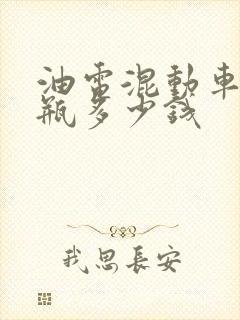 油電混動車
瓶多少錢
我思長安